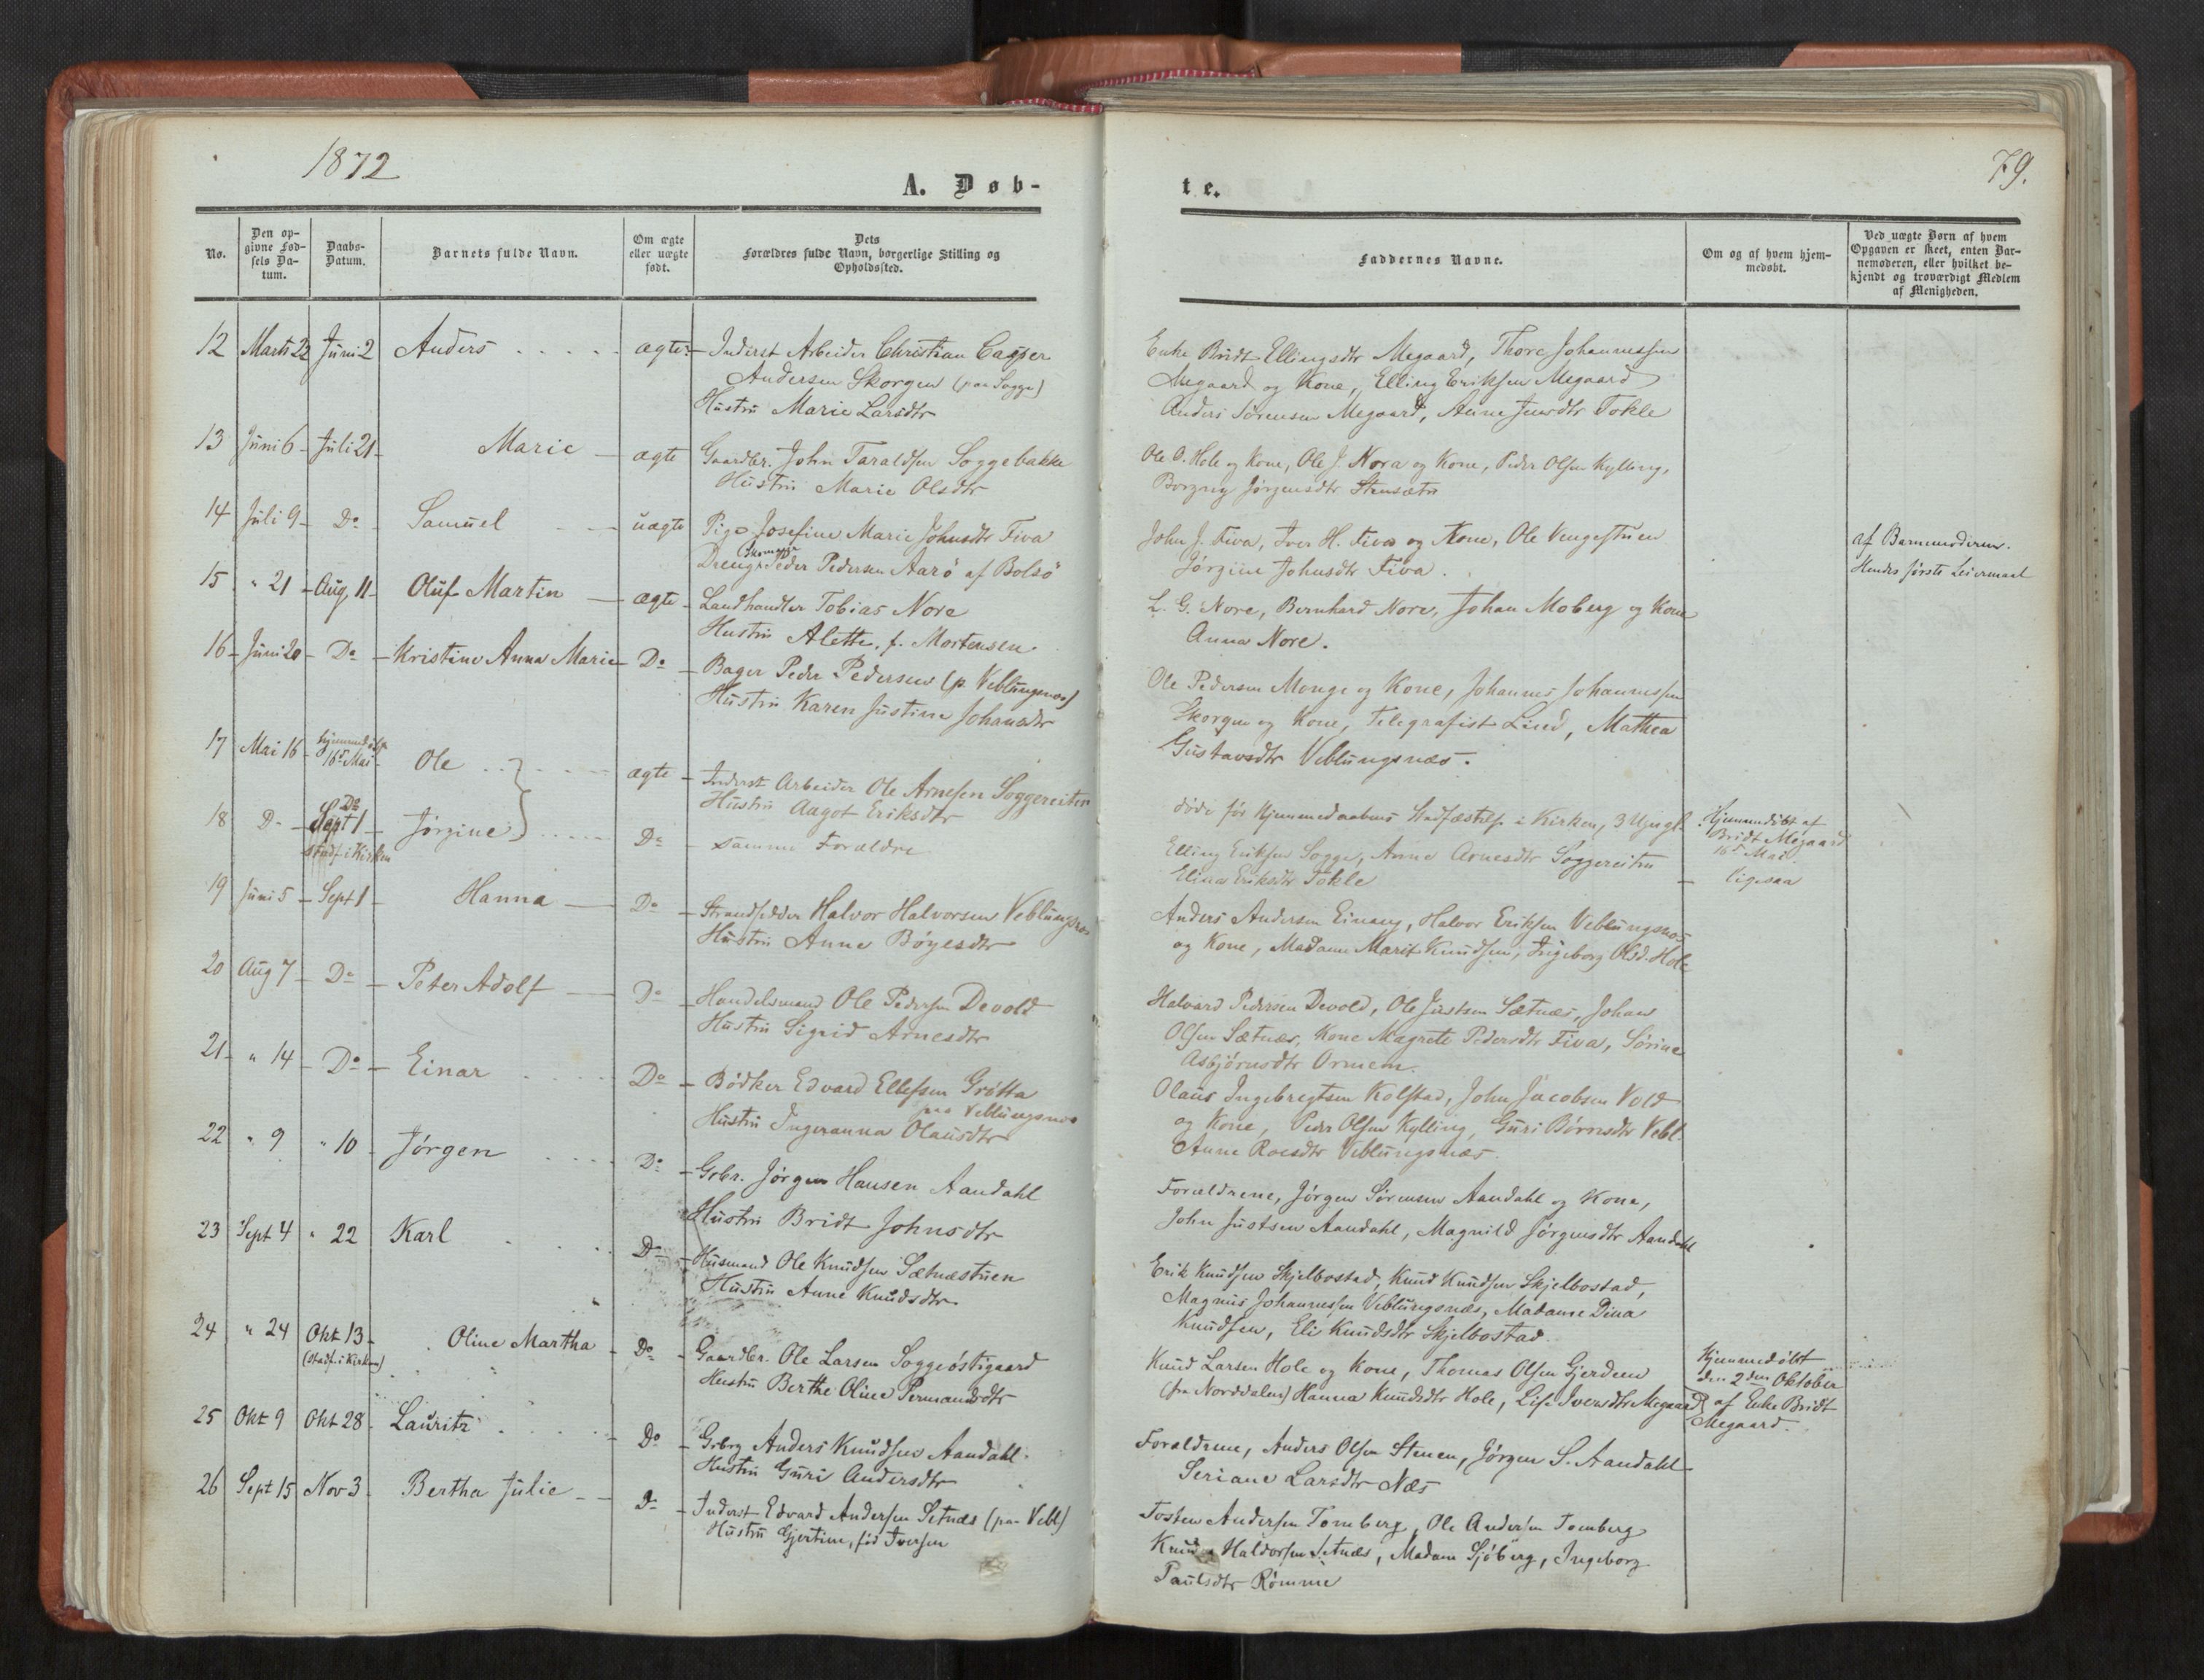 1872
A. Døb-
No.
Den op-
givne Fød-
sels Da-
tum.
Daabs-
Datum.
Barnets fulde Navn.
Om ægte
eller uægte
født.
Dets
Forældres fulde Navn, borgerlige Stilling og
Opholdssted.
12 Marts 22 Juni 2 Anders ægte Inderst Arbeider Christian Casper
Andersen Skorgen (paa Sogge)
Hustru Marie Larsdtr
13 Juni 6 Juli 21 Marie ægte Gaardbr. John Taraldsen Soggebakke
Hustru Marie Olsdtr
14 Juli 9 Do Samuel uægte Pige Josefine Marie Johnsdtr Fiva
Dreng Peder Pedersen Aarö af Bolsö
15 " 21 Aug 11 Oluf Martin ægte Landhandler Tobias Nore
Hustru Alette, f. Mortensen
16 Juni 20 Do Kristine Anna Marie Do Bager Peder Pedersen (p. Veblungsnæs)
Hustru Karen Justine Johansdtr
17 Mai 16 hjemmedøbt
16de Mai Ole ægte Inderst Arbeider Ole Arnesen Soggereiten
Hustru Aagot Eriksdtr
18 Do Do
Sept 1
stadf i Kirken Jørgine Do samme Forældre
19 Juni 5 Sept 1 Hanna Do Strandsidder Halvor Halvorsen Veblungsnæs
Hustru Anne Böyesdtr
20 Aug 7 Do Peter Adolf Do Handelsmand Ole Pedersen Devold
Hustru Sigrid Arnesdtr
21 " 14 Do Einar Do Bödker Edvard Ellefsen Grötta
paa Veblungsnæs
Hustru Ingeranna Olausdtr
22 " 9 " 10 Jørgen Do Grbr. Jørgen Hansen Aandahl
Hustru Bridt Johnsdtr
23 Sept 4 " 22 Karl Do Husmand Ole Knudsen Sætnæstuen
Hustru Anne Knudsdtr
24 " 24 Okt 13
(stadf. i Kirken) Oline Martha Do Gaardbr. Ole Larsen Soggeöstigaard
Hustru Berthe Oline Permandsdtr
25 Okt 9 Okt 28 Lauritz Do Grbrg Anders Knudsen Aandahl
Hustru Guri Andersdtr
26 Sept 15 Nov 3 Bertha Julie Do Inderst Edvard Andersen Setnæs (paa Vebl)
Hustru Gjertine, fød Iversen
te.
79.
Faddernes Navne.
Om og af hvem hjem-
medøbt.
Ved uægte Børn af hvem
Opgaven er skeet, enten Bar-
nemoderen, eller hvilket be-
kjendt og troværdigt Medlem
af Menigheden.
Enke Bridt Ellingsdtr Megaard, Thore Johannessen
Megaard og Kone, Elling Eriksen Megaard
Anders Sörensen Megaard, Anne Jensdtr Tokle
Ole O. Hole og Kone, Ole J. Nora og Kone, Peder Olsen Kylling,
Borgny Jørgensdtr Stensætr
John J. Fiva, Iver H. Fiva og Kone, Ole Vengestuen
Jørgine Johnsdtr Fiva.
af Barnemoderen.
Hendes første Leiermaal
L. G. Nore, Bernhard Nore, Johan Moberg og Kone
Anna Nore.
Ole Pedersen Monge og Kone, Johannes Johannessen
Skorgen og Kone, Telegrafist Lied, Mathea
Gustavsdtr Veblungsnæs.
döde för Hjemmedaabens Stadfæstelse i Kirken, 3 Uger gl.
Hjemmedöbt af
Bridt Megaard
16de Mai
Elling Eriksen Sogge, Anne Arnesdtr Soggereiten
Elina Eriksdtr Tokle
ligesaa
Anders Andersen Einang, Halvor Eriksen Veblungsnæs
og Kone, Madame Marit Knudsen, Ingeborg Olsd. Hole
Halvard Pedersen Devold, Ole Justsen Sætnæs, Johan
Olsen Sætnæs, Kone Magrete Pedersdtr Fiva, Sörine
Asbjörnsdtr Ormem.
Olaus Ingebregtsen Kolstad, John Jacobsen Vold
og Kone, Peder Olsen Kylling, Guri Börnsdtr Vebl.
Anne Roesdtr Veblungsnæs.
Forældrene, Jørgen Sörensen Aandahl og Kone,
John Justsen Aandahl, Magnild Jørgensdtr Aandahl
Erik Knudsen Skjelbostad, Knud Knudsen Skjelbostad,
Magnus Johannessen Veblungsnæs, Madame Dina
Knudsen, Eli Knudsdtr Skjelbostad.
Knud Larsen Hole og Kone, Thomas Olsen Gjerdeen
(fra Norddalen) Hanna Knudsdtr Hole, Lise Iversdtr Megaard
Hjemmedöbt
den 2den Oktober
af Enke Bridt
Megaard.
Forældrene, Anders Olsen Stenen, Jørgen S. Aandahl
Seriane Larsdtr Næs
Tosten Andersen Tomberg, Ole Andersen Tomberg
Knud Haldorsen Setnæs, Madam Sjöberg, Ingeborg
Paulsdtr Römme